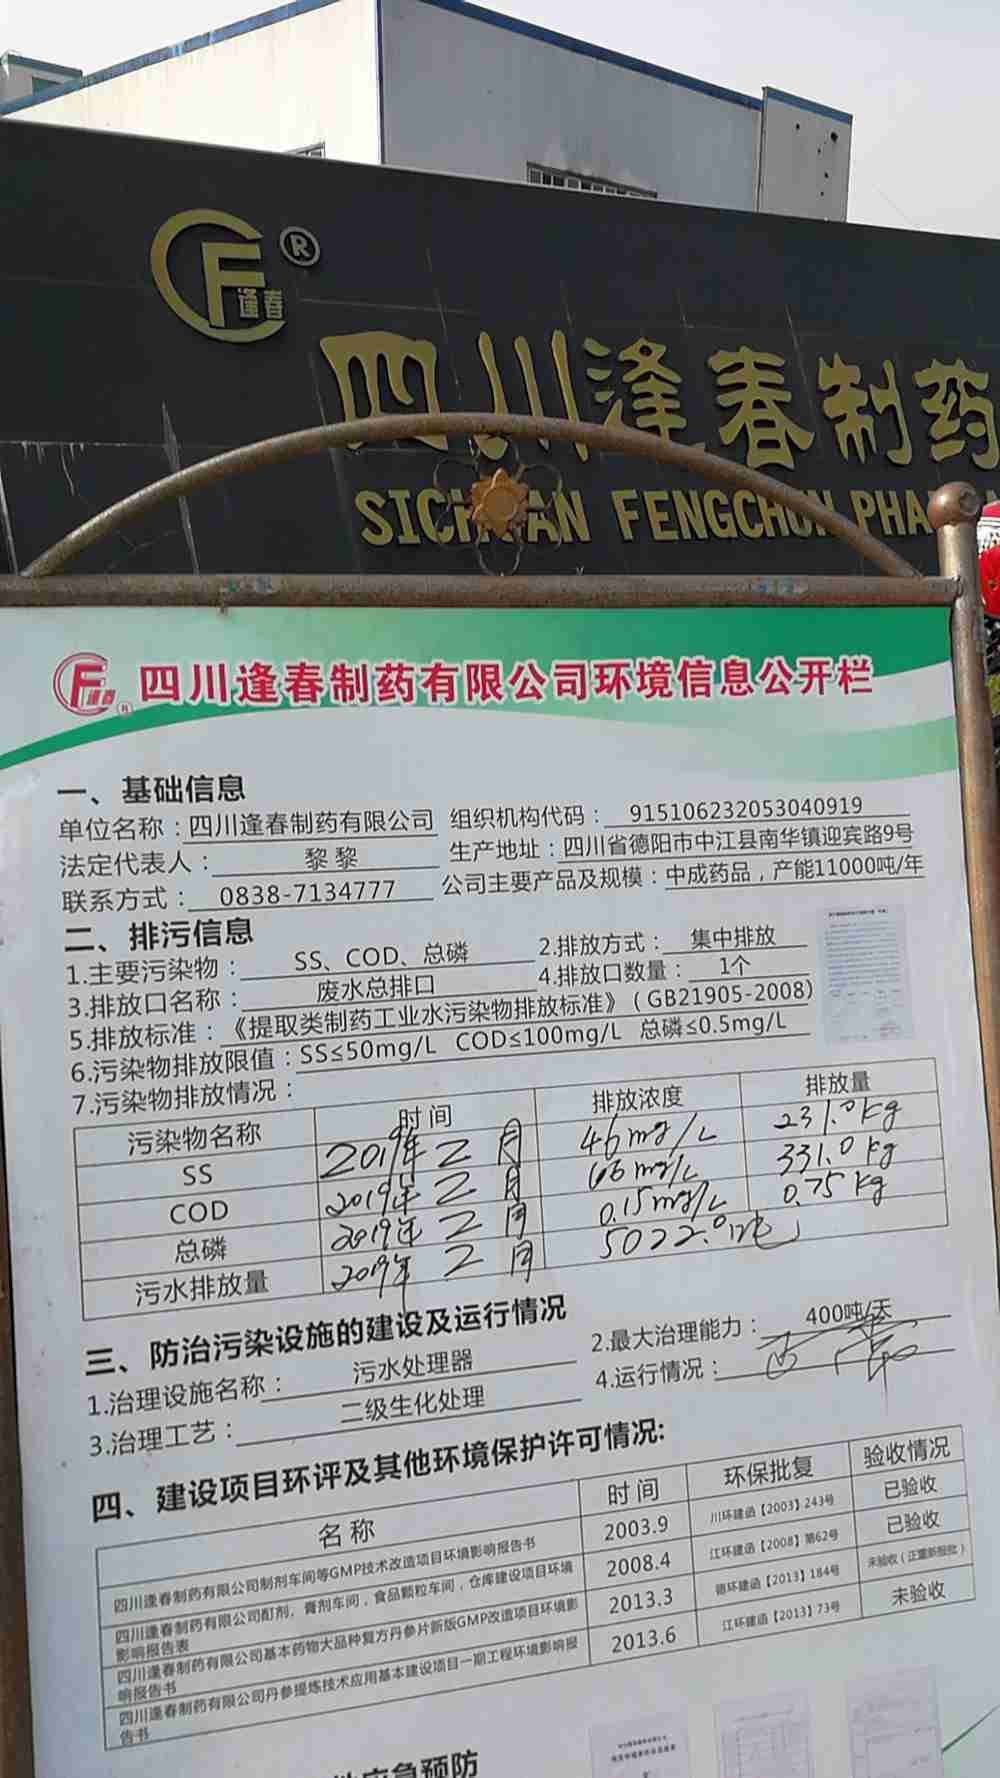 CF逢春®
四川逢春制药
SICHUAN FENGCHUN PHA
CF逢春® 四川逢春制药有限公司环境信息公开栏
一、基础信息
单位名称：四川逢春制药有限公司 组织机构代码： 915106232053040919
法定代表人： 黎黎 生产地址：四川省德阳市中江县南华镇迎宾路9号
联系方式： 0838-7134777 公司主要产品及规模：中成药品，产能11000吨/年
二、排污信息
1.主要污染物： SS、COD、总磷 2.排放方式： 集中排放
3.排放口名称： 废水总排口 4.排放口数量： 1个
5.排放标准：《提取类制药工业水污染物排放标准》（GB21905-2008)
6.污染物排放限值：SS≤50mg/L COD≤100mg/L 总磷≤0.5mg/L
7.污染物排放情况：
污染物名称 时间 排放浓度 排放量
SS 2019年二月 46mg/L 231.0kg
COD 2019年二月 66mg/L 331.0kg
总磷 2019年二月 0.15mg/L 0.75kg
污水排放量 2019年二月 5022.0吨
三、防治污染设施的建设及运行情况
1.治理设施名称： 污水处理器 2.最大治理能力： 400吨/天
3.治理工艺： 二级生化处理 4.运行情况： 正常
四、建设项目环评及其他环境保护许可情况:
名称 时间 环保批复 验收情况
四川逢春制药有限公司制剂车间等GMP技术改造项目环境影响报告书 2003.9 川环建函【2003】243号 已验收
四川逢春制药有限公司酊剂，膏剂车间，食品颗粒车间，仓库建设项目环境
影响报告表 2008.4 江环建函【2008】第62号 已验收
四川逢春制药有限公司基本药物大品种复方丹参片新版GMP改造项目环境影
响报告书 2013.3 德环建函【2013】184号 未验收（正重新报批）
四川逢春制药有限公司丹参提炼技术应用基本建设项目一期工程环境影响报
告书 2013.6 江环建函【2013】73号 未验收
应急预防